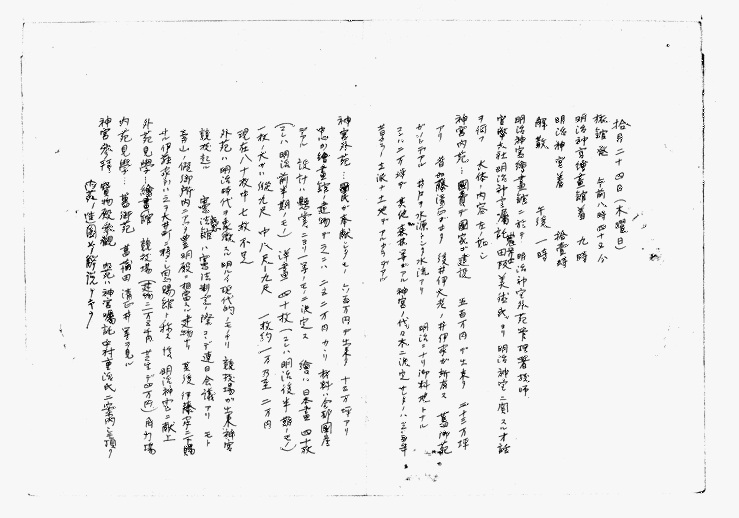 拾月二十四日(木曜日)
旅館発 午前八時四十五分
明治神宮絵畫館着 九時
明治神宮着 拾壹時
解散 午後一時
明治神宮繪畫館ニ於テ 明治神宮外苑管理署技師
官幣大社明治神宮嘱託 田阪美徳氏ヨリ 明治神宮ニ関スル才話
ヲ伺フ 大体ノ内容左ノ如シ
神宮内苑…國費デ國家ガ建設 五百万円デ出来タ 二十三万坪
アリ 昔加藤清正ガ 後井伊大老ノ井伊家ガ所有ス 菖蒲苑
ガ 井戸ヲ水源トシタ水流アリ 明治ニナリ御料地トナル
コハ二万坪デ其他 ガアル 神宮ノ代々木ニ決定セ
昔ヨリ 土地デアルカラデアル
神宮外苑…國民ガ奉献シタモノ 六百万円デ出来タ 十五万坪アリ
中心ガ繪畫館ノ建物デ 二百二万円カヽリ 材料ハ全部國産
デアル 設計ハ懸賞ニヨリ一等ノモノニ決定ス 繪ハ日本畫 四十枚
(コレハ明治前半期ノモノ) 洋畫 四十枚(コレハ明治後半期ノモノ)
一枚ノ大サハ縦九尺 巾八尺―九尺 一枚約一万乃至二万円
現在八十枚中七枚不足
外苑ハ明治時代ヲ象徴スル明ルイ現代的ノモノデ 競技場ガ出来神宮
競技起ル 憲法館ハ憲法制定ノ際コヽデ連日会議アリ モト
青山ノ仮御所内ニアリ 豊明殿ニ相当スル建物デ 其後伊藤公ニ下賜
サル 伊藤公ハ之ヲ大井町ニ移シ恩賜館ト称ス 後明治神宮ニ献上
外苑見學…繪畫館 競技場(建物二万五千 芝生デ四万円)角力場
内苑見學…菖蒲苑 菖蒲田 清正井等ヲ見ル
神宮参拝 寶物殿参観 内苑ハ神宮嘱託中村重治氏ニ案内ヲ頂ク
内苑ノ造園ヲ解説